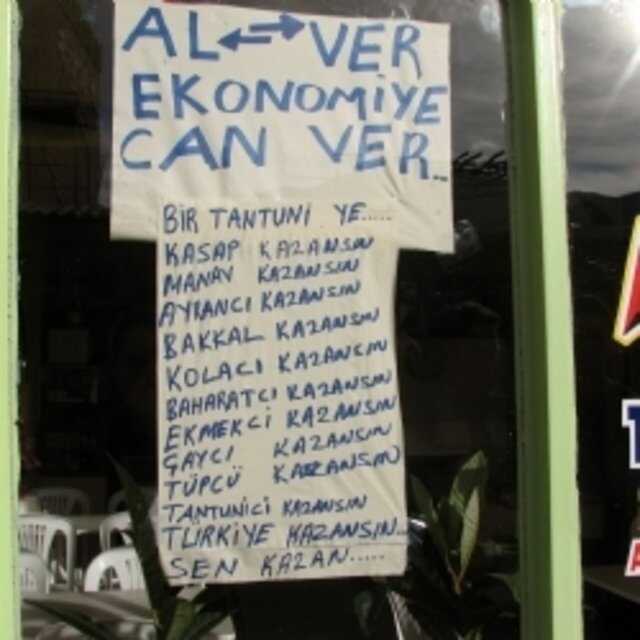 AL ⇄ VER
EKONOMİYE
CAN VER..
BİR TANTUNI YE.....
KASAP KAZANSIN
MANAV KAZANSIN
AYRANCI KAZANSIN
BAKKAL KAZANSIN
KOLACI KAZANSIN
BAHARATCI KAZANSIN
EKMEKCİ KAZANSIN
ÇAYCI KAZANSIN
TÜPCÜ KAZANSIN
TANTUNİCİ KAZANSIN
TÜRKİYE KAZANSIN..
SEN KAZAN.....